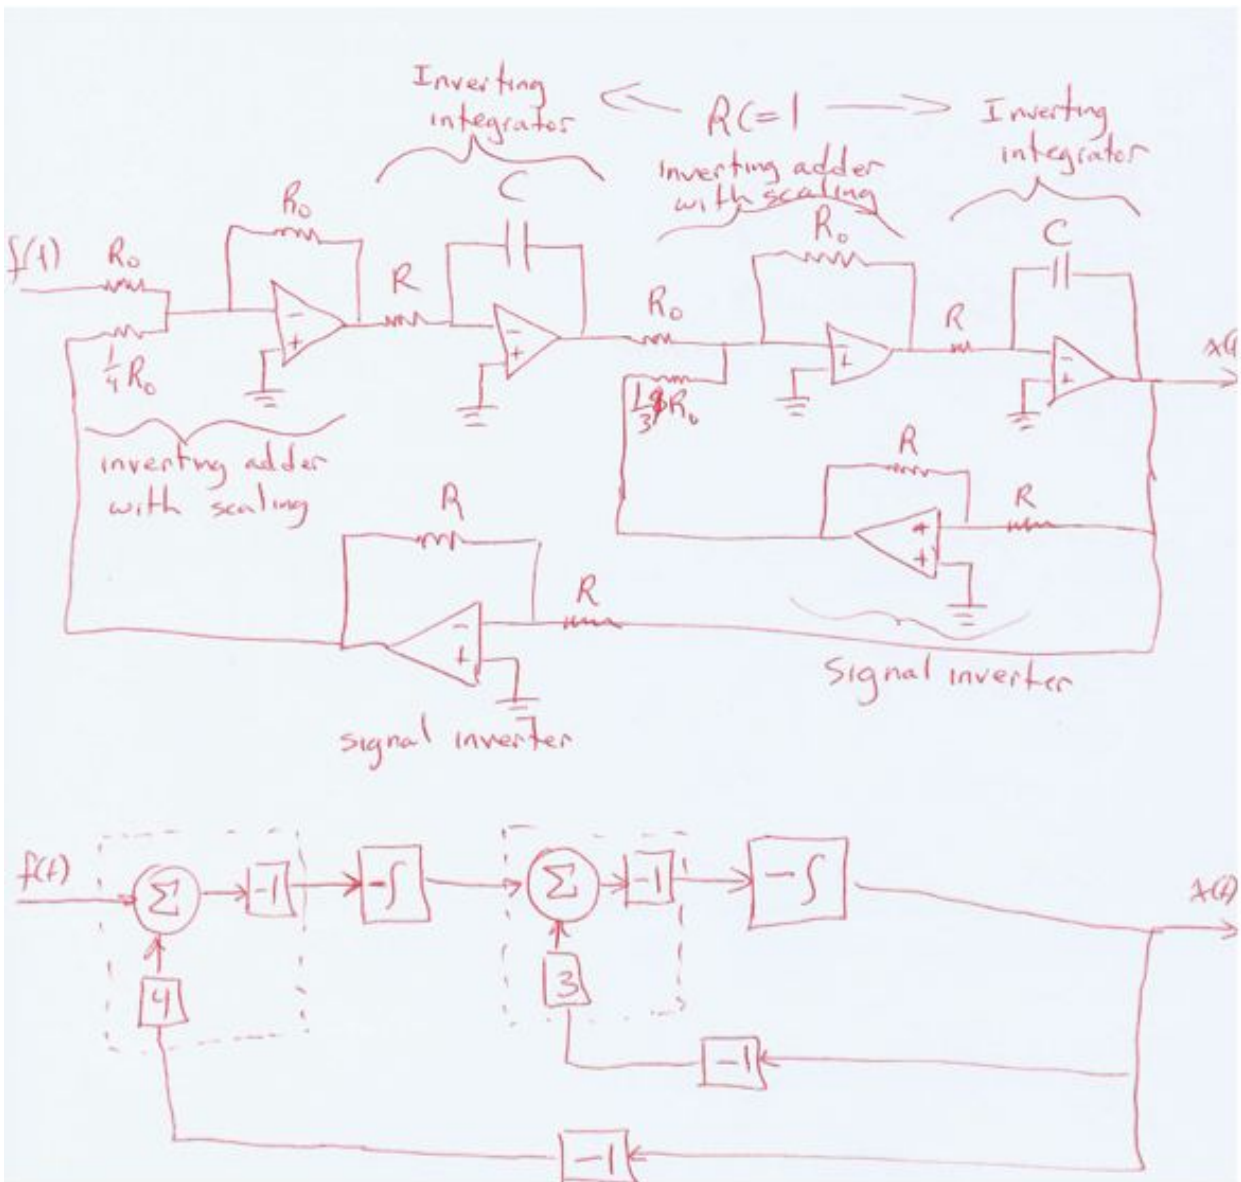 Inverting
integrator
RC=1
Inverting
integrator
inverting adder
with scaling
C
R₀
R₀
C
f(t)
R₀
R
R₀
R
1/4 R₀
1/3 R₀
x(t)
- +
- +
- +
- +
inverting adder
with scaling
R
R
+ +
R
R
- +
signal inverter
signal inverter
f(t)
Σ
-1
-∫
Σ
-1
-∫
x(t)
4
3
-1
-1